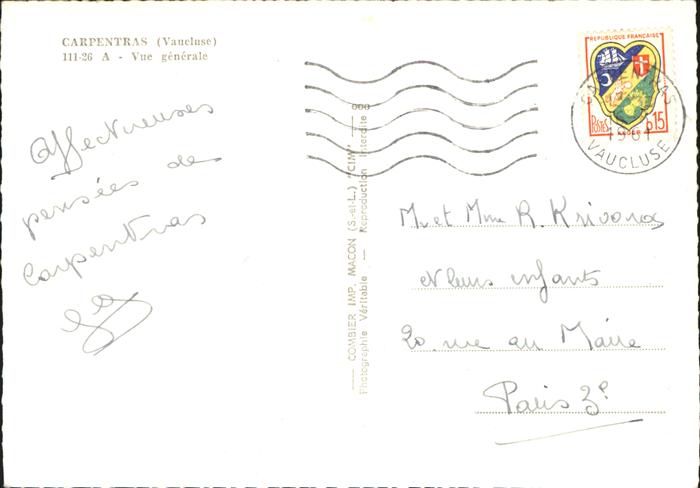 CARPENTRAS (Vaucluse)
111-26 A - Vue générale
Affectueuses
pensées de
Carpentras
COMBIER IMP. MACON (S.-et-L.) "CIM"
Photographie Véritable — Reproduction Interdite
REPUBLIQUE FRANÇAISE
POSTES
0,15
ALGER
1961
VAUCLUSE
Mr et Mme R. Krivorox
et leurs enfants
20. rue au Maire
Paris 3e